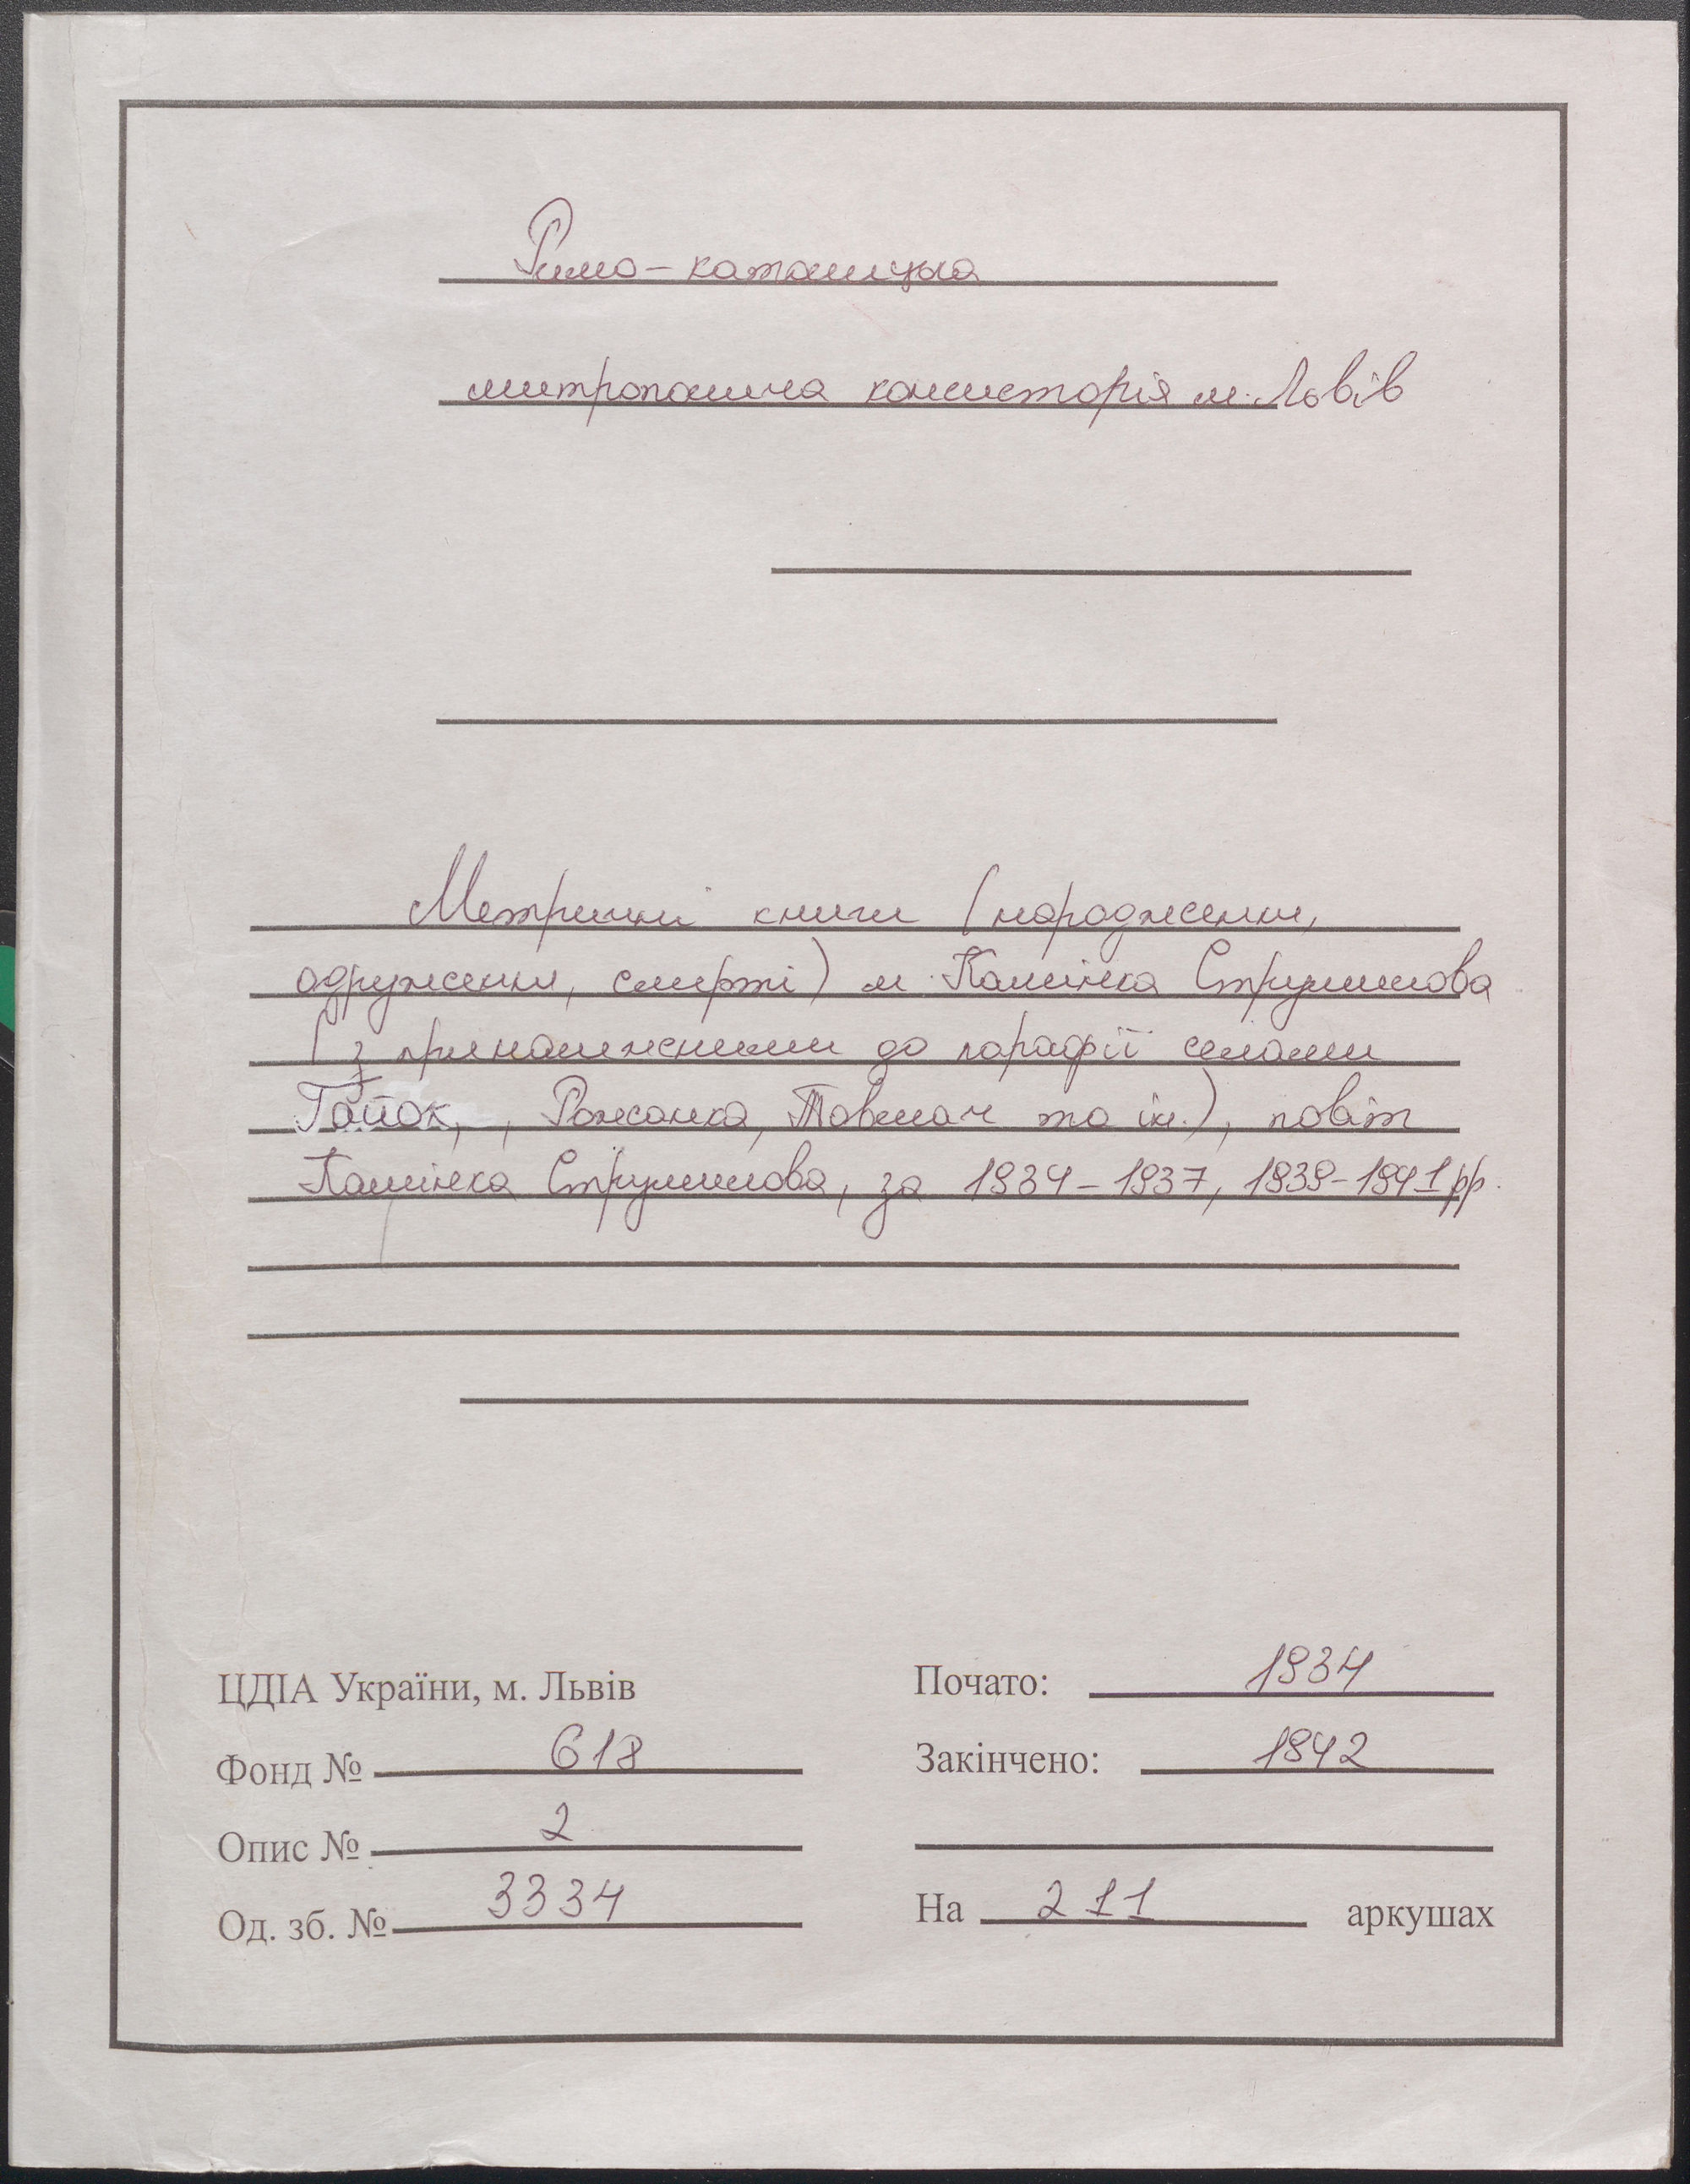 Римо-католицька
митрополича консисторія м. Львів
Метричні книги (народження,
одруження, смерті) м. Камінка Струмилова
(з приналежними до парафії селами
Гайок, , Рожанка, Товмач та ін.), повіт
Камінка Струмилова, за 1834-1837, 1839-1841 рр.
ЦДІА України, м. Львів
Почато: 1834
Фонд № 618
Закінчено: 1842
Опис № 2
Од. зб. № 3334
На 211 аркушах